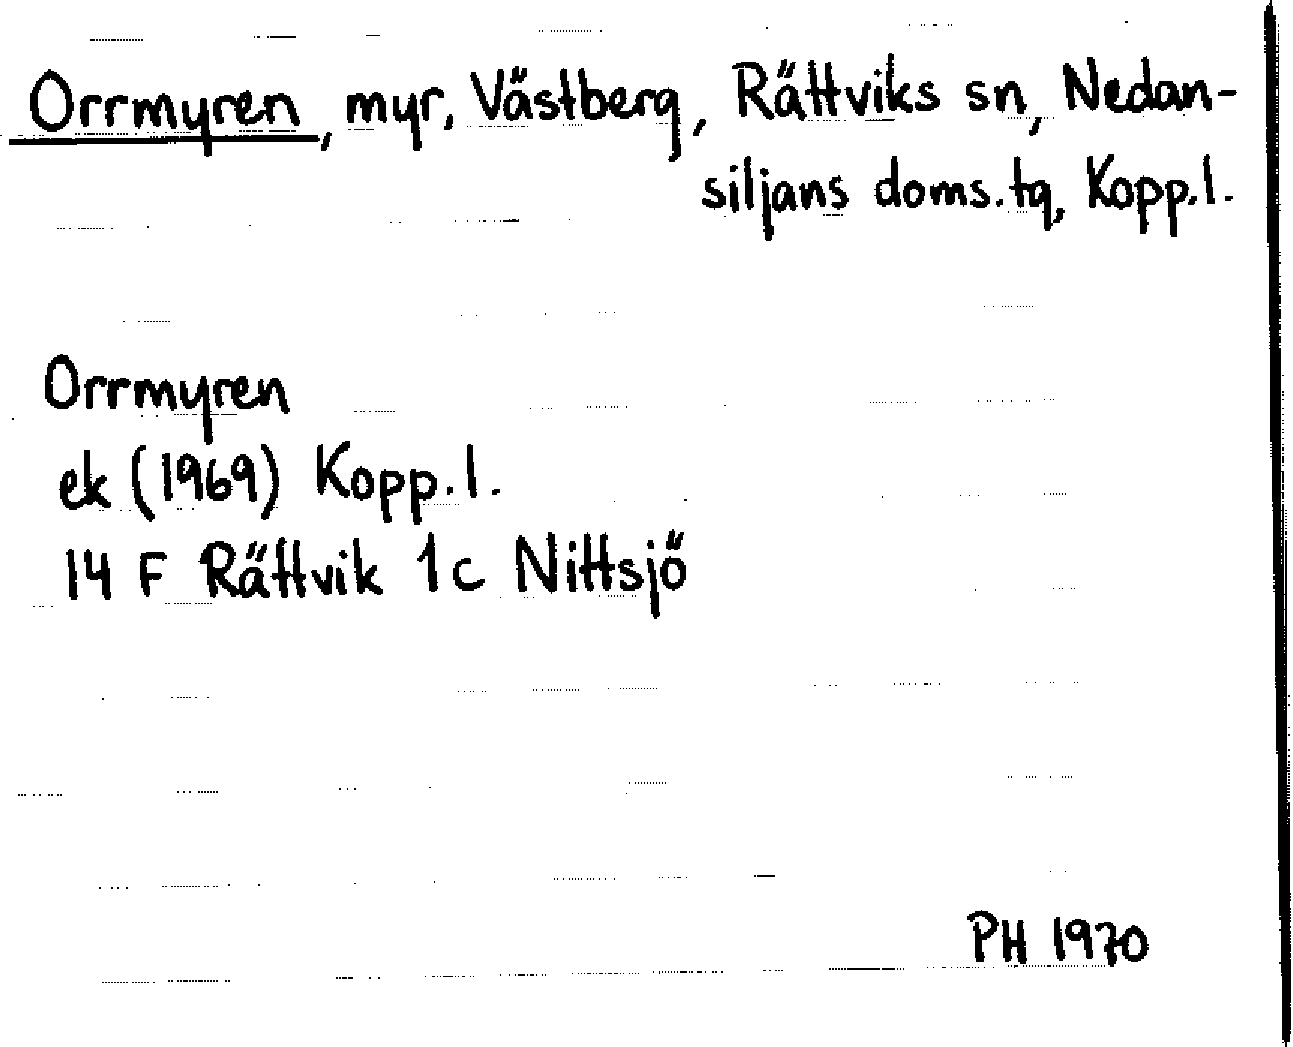 Orrmyren, myr, Västberg, Rättviks sn, Nedan-
siljans doms.tg, Kopp.l.
Orrmyren
ek (1969) Kopp.l.
14 F Rättvik 1c Nittsjö
PH 1970